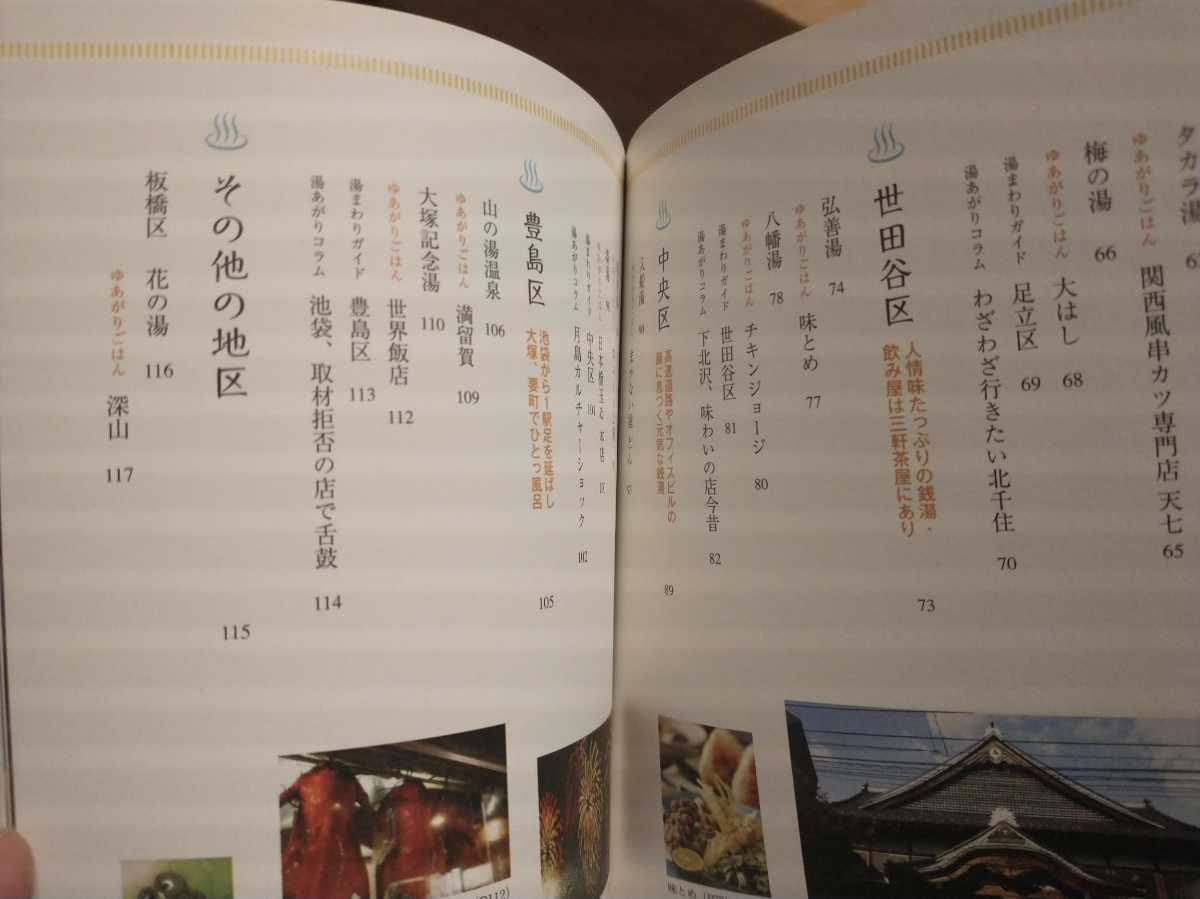 タカラ湯
ゆあがりごはん 関西風串カツ専門店 天七 65
梅の湯 66
ゆあがりごはん 大はし 68
湯まわりガイド 足立区 69
湯あがりコラム わざわざ行きたい北千住 70
世田谷区 人情味たっぷりの銭湯・
飲み屋は三軒茶屋にあり 73
弘善湯 74
ゆあがりごはん 味とめ 77
八幡湯 78
ゆあがりごはん チキンジョージ 80
湯まわりガイド 世田谷区 81
湯あがりコラム 下北沢、味わいの店今昔 82
中央区 高速道路やオフィスビルの
藤に息づく元気な銭湯 89
入船湯 90
湯まわりガイド 中央区 101
湯あがりコラム 月島カルチャーショック 102
豊島区 池袋から1駅足を延ばし
大塚、要町でひとっ風呂 105
山の湯温泉 106
ゆあがりごはん 満留賀 109
大塚記念湯 110
ゆあがりごはん 世界飯店 112
湯まわりガイド 豊島区 113
湯あがりコラム 池袋、取材拒否の店で舌鼓 114
その他の地区 115
板橋区 花の湯 116
ゆあがりごはん 深山 117
味とめ